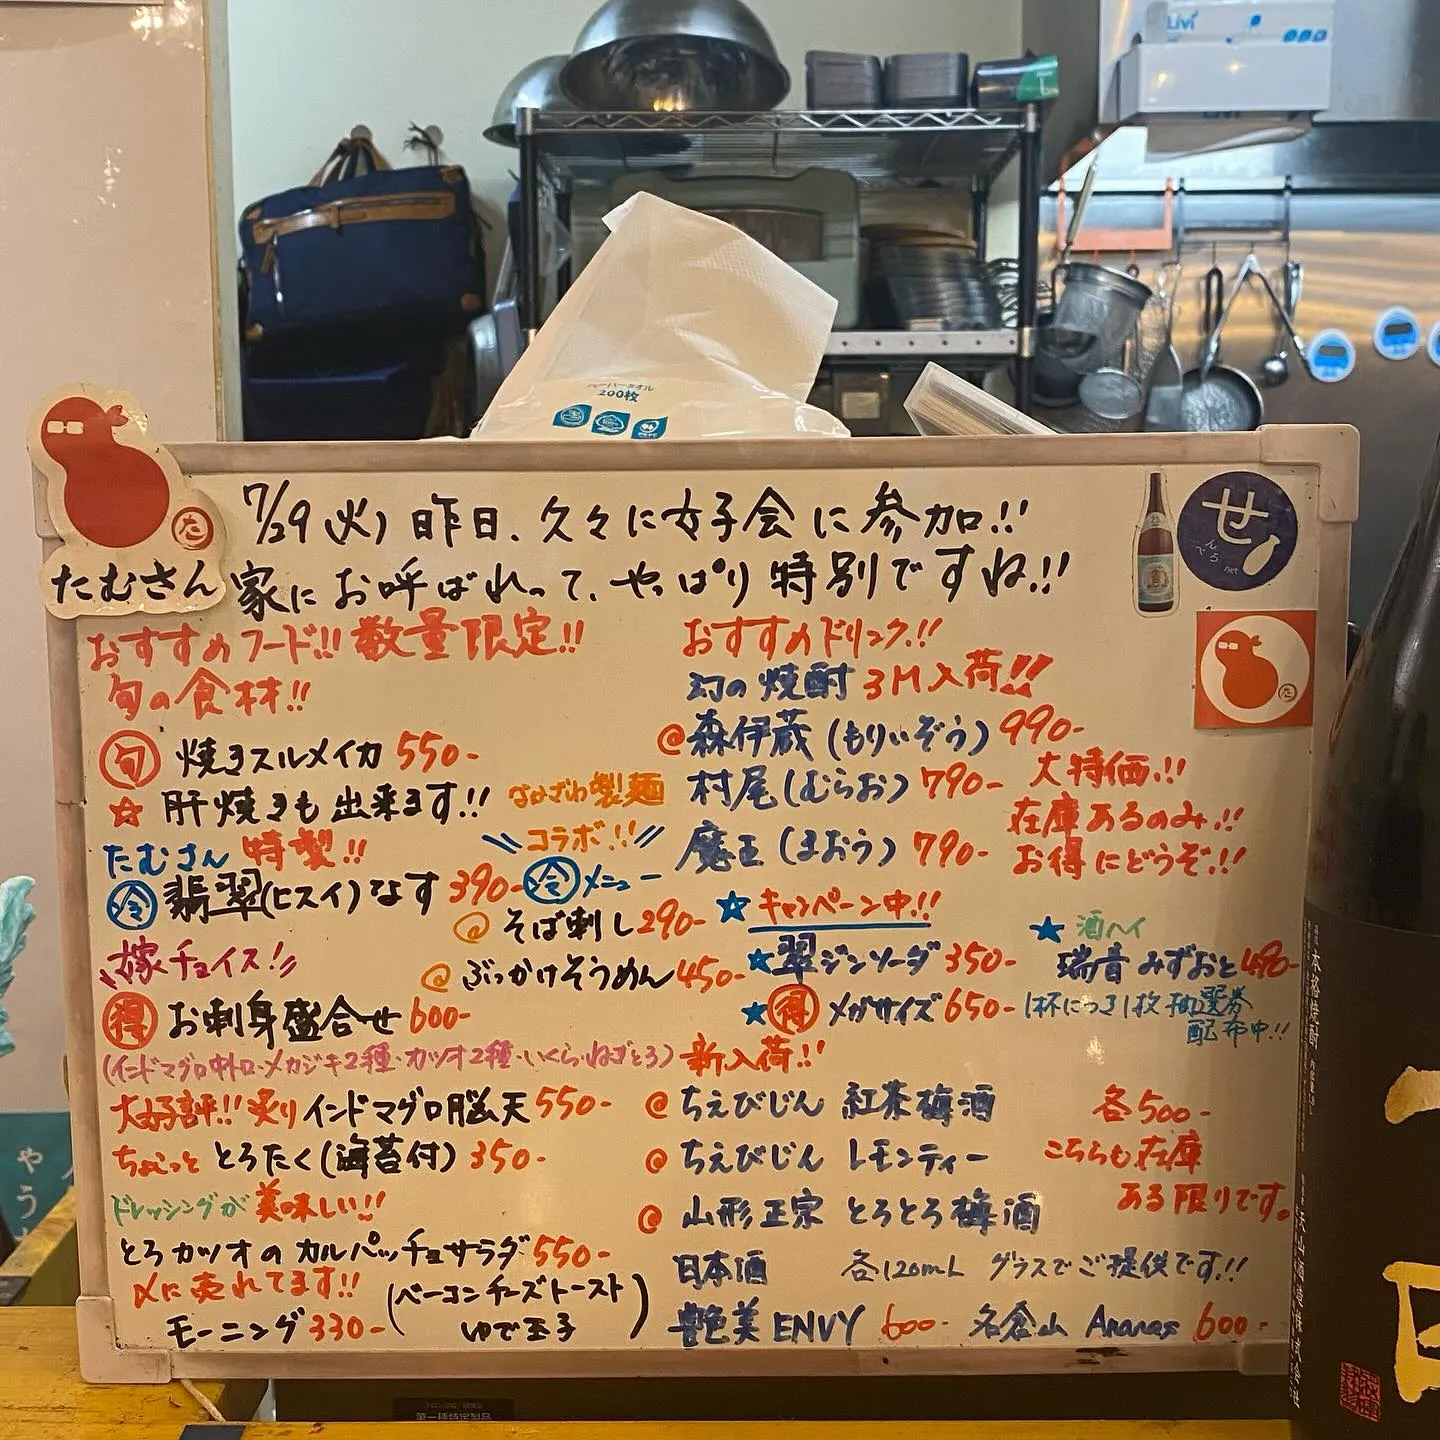 Livi
ペーパータオル
200枚
たむさん
た
せ
んべろ
net
7/29(火)昨日、久々に女子会に参加!!
家にお呼ばれって、やっぱり特別ですね!!
おすすめフード!!数量限定!!
旬の食材!!
旬 焼きスルメイカ 550-
☆ 肝焼きも出来ます!!
たむさん特製!!
冷 翡翠(ヒスイ)なす 390-
製麺
コラボ!!
冷メニュー
@そば刺し 290-
@ぶっかけそうめん 450-
嫁チョイス!!
得 お刺身盛合せ 600-
(インドマグロ中トロ・メカジキ2種・カツオ2種・いくら・ねぎとろ)
大好評!!炙りインドマグロ脳天 550-
ちょこっと とろたく(海苔付) 350-
ドレッシングが美味しい!!
とろカツオのカルパッチョサラダ 550-
〆に売れてます!!
モーニング 330-(ベーコンチーズトースト
ゆで玉子)
おすすめドリンク!!
幻の焼酎 3M入荷!!
@森伊蔵(もりいぞう) 990-
村尾(むらお) 790-
魔王(まおう) 790-
大特価!!
在庫あるのみ!!
お得にどうぞ!!
★キャンペーン中!!
★翠ジンソーダ 350-
★得 メガサイズ 650-
★酒ハイ
瑞音 みずおと 490-
1杯につき1枚抽選券
配布中!!
新入荷!!
@ちえびじん 紅茶梅酒
@ちえびじん レモンティー
@山形正宗 とろとろ梅酒
各500-
こちらも在庫
ある限りです。
日本酒 各120mL グラスでご提供です!!
艶美 ENVY 600- 名倉山 Ananas 600-
第一種特定製品